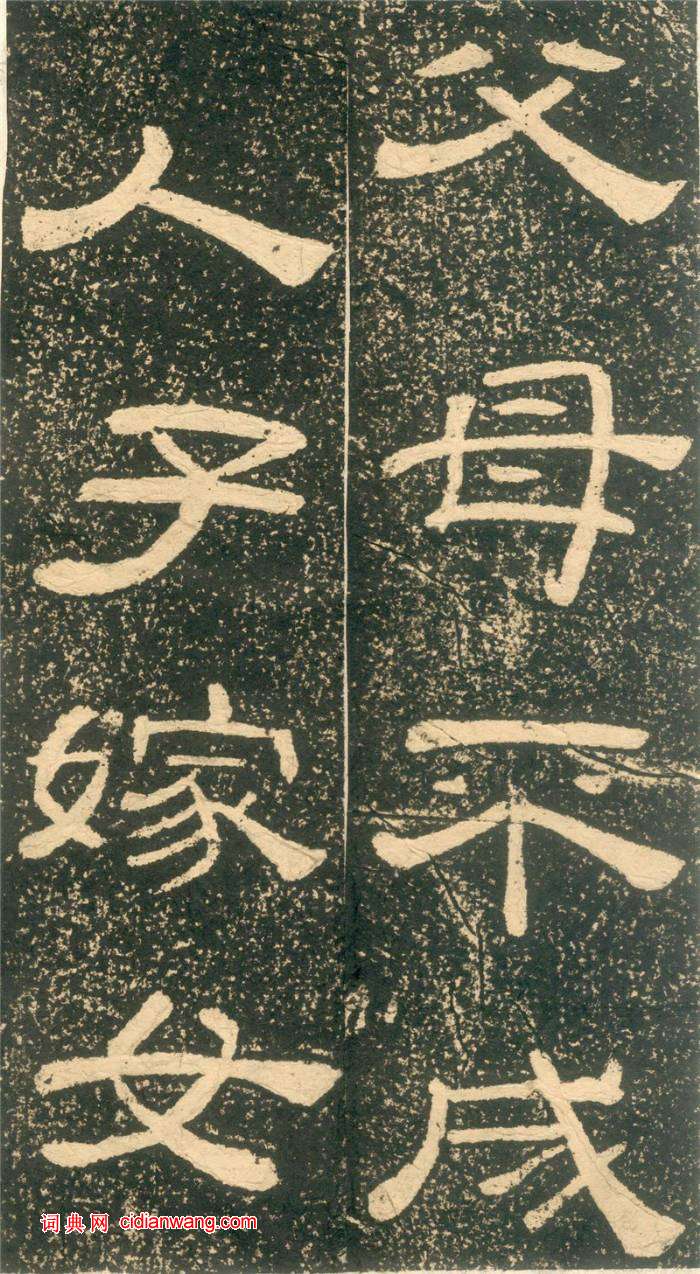 父母不成
人子嫁女
词典网 cidianwang.com